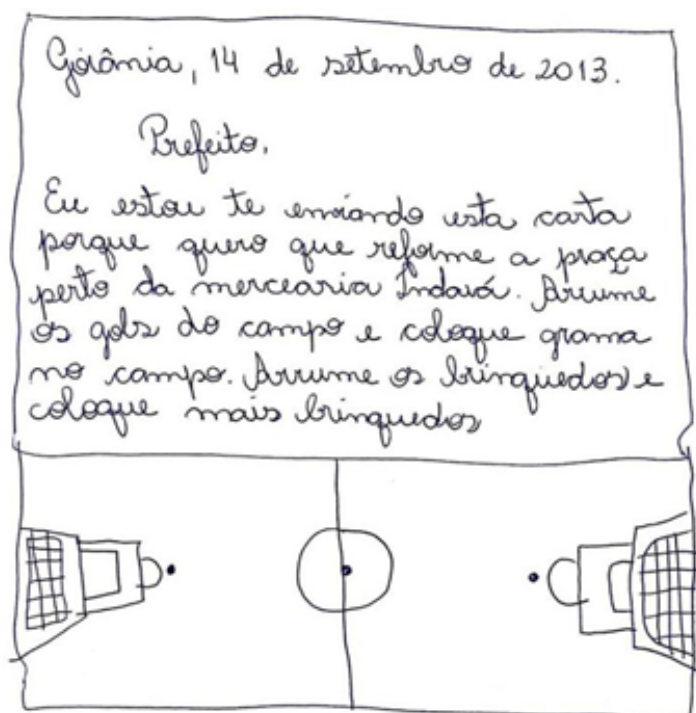 Goiânia, 14 de setembro de 2013.
Prefeito,
Eu estou te enviando esta carta
porque quero que reforme a praça
perto da mercearia Indaiá. Arrume
os gols do campo e coloque grama
no campo. Arrume os brinquedos e
coloque mais brinquedos